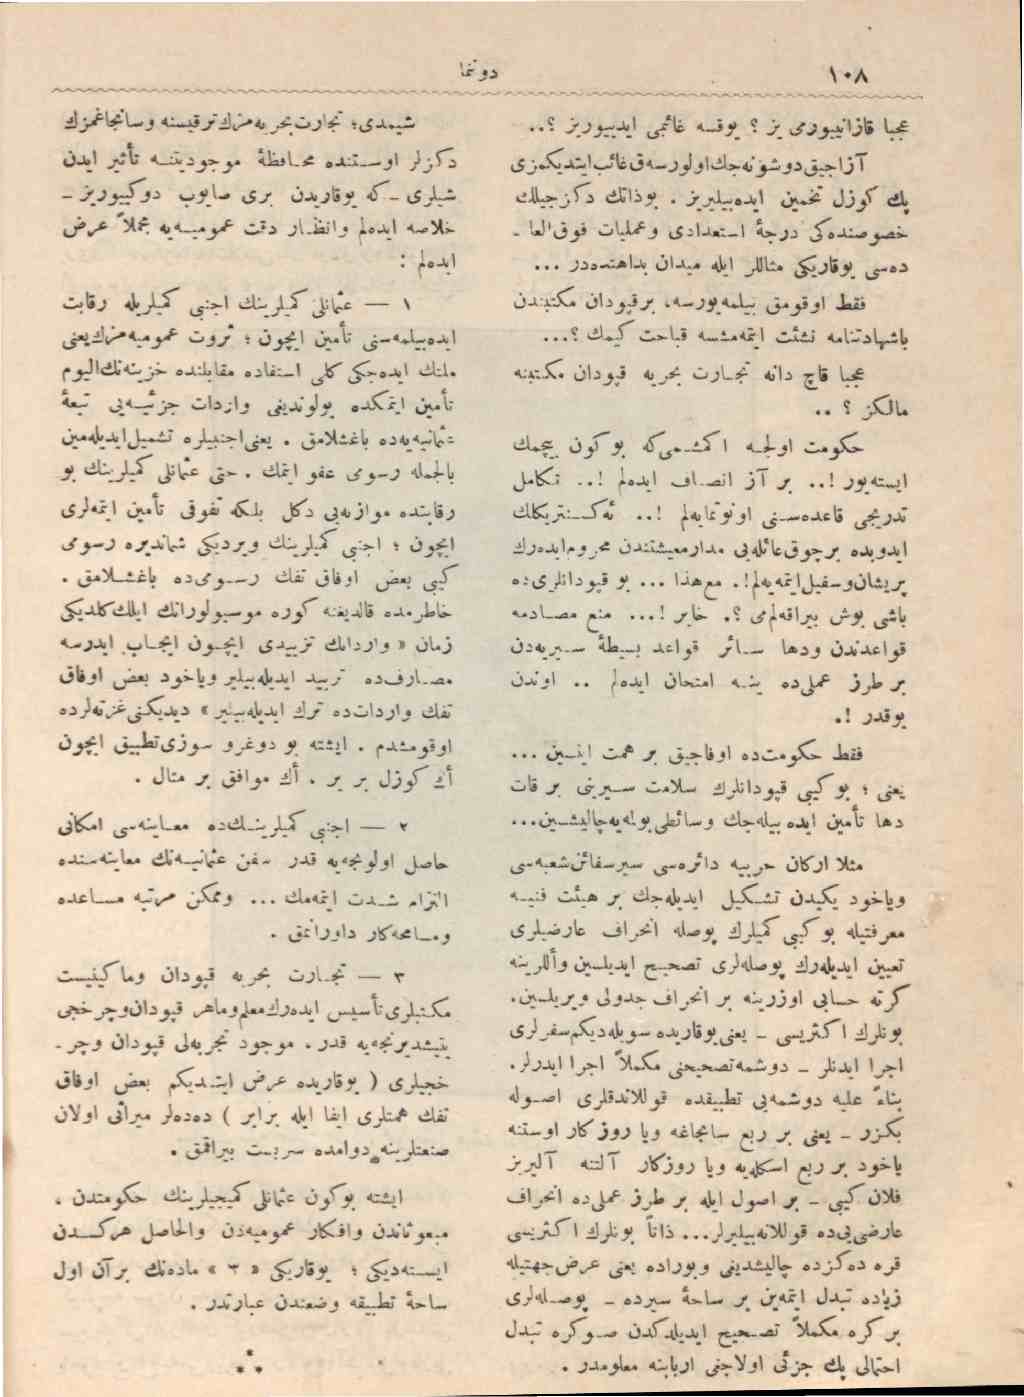 ١٠٨
دوننما
عجبا قازانييورمى يز ؟ يوقسه غائبمى ايدييوريز ؟..
آزاجيق دوشونه‌جك اولورسه‌ق غائب ايتديكمزى
پك كوزل تخمين ايده‌بيليريز . بوذاتك دكزجيلك
خصوصنده‌كى درجهٔ استعدادى وعمليات فوق العا ـ
ده‌سى يوقاريكى مثاللر ايله ميدان بداهتده‌در ...
فقط اوقومق بيلمه‌يورسه، برقپودان مكتبندن
باشهادتنامه نشئت ايتمه‌مشسه قباحت كيمك ؟...
عجبا قاچ دانه تجارت بحريه قپودان مكتبنه
مالكز ؟ ..
حكومت اولجه اكمشمى‌كه بو كون بيچمك
ايسته‌يور !.. بر آز انصاف ايده‌لم !.. تكامل
تدريجى قاعده‌سنى اونوتمايه‌لم !..
ايدوبده برچوق عائله‌يى مدارمعيشتندن محروم ايده‌رك
پريشان وسفيل ايتمه‌يه‌لم !. مع‌هذا ... بو قپودانلرى‌ده
باشى بوش بيراقه‌لم‌مى ؟. خاير !... منع مصادمه
قواعدندن ودها سائر قواعد بسيطهٔ سيريه‌دن
بر طرز عملى‌ده ينه امتحان ايده‌لم .. اوندن
يوقدر !.
فقط حكومت‌ده اوفاجيق بر همت ايتسين ...
يعنى ؛ بو كيبى قپودانلرك سلامت سيرينى بر قات
دها تأمين ايده بيله‌جك وسائطى بولمه‌يه چاليشسين...
مثلا اركان حربيه دائره‌سى سيرسفائن شعبه‌سى
وياخود يكيدن تشكيل ايديله‌جك بر هيئت فنيه
معرفتيله بو كيبى كميلرك پوصله انحراف عارضيلرى
تعيين ايديله‌رك پوصله‌لرى تصحيح ايديلسين وأللرينه
كرته حسابى اوزرينه بر انحراف جدولى ويريلسين.
بونلرك اكثريسى ـ يعنى يوقاريده سويله‌ديكم سفرلرى
اجرا ايدنلر ـ دوشمه تصحيحنى مكملاً اجرا ايدرلر.
بناءً عليه دوشمه‌يى تطبيقده قوللاندقلرى اصوله
بكزر ـ يعنى بر ربع سانجاغه ويا روزكار اوستنه
ياخود بر ربع اسكله‌يه ويا روزكار آلتنه آليريز
فلان كيبى ـ بر اصول ايله بر طرز عملى‌ده انحراف
عارضى‌يى‌ده قوللانه‌بيليرلر... ذاتاً بونلرك اكثريسى
قره ده‌كزده چاليشديغى وبوراده يعنى عرض جهتيله
زياده تبدل ايتمه‌ين بر ساحهٔ سيرده ـ پوصله‌لرى
بر كره مكملاً تصحيح ايديلدكدن صوكره تبدل
احتمالى پك جزئى اولاجغى اربابنه معلومدر .
شيمدى ؛ تجارت بحريه‌مزك ترقيسنه وسانجاغمزك
دكزلر اوستنده محافظهٔ موجوديتنه تأثير ايدن
شيلرى ـ كه يوقاريدن برى صايوب دوكييوريز ـ
خلاصه ايده‌لم وانظار دقت عموميه‌يه مجملاً عرض
ايده‌لم :
١ — عثمانلى كميلرينك اجنبى كميلريله رقابت
ايده‌بيلمه‌سنى تأمين ايچون ؛ ثروت عموميه‌مزك يعنى
ملتك ايده‌جكى كلى استفاده مقابلنده خزينه‌نك اليوم
تأمين ايتمكده بولونديغى واردات جزئيه‌يى تبعهٔ
عثمانيه‌يه‌ده باغشلامق . يعنى اجنبيلره تشميل ايديله‌مين
بالجمله رسومى عفو ايتمك . حتى عثمانلى كميلرينك بو
رقابتده موازنه‌يى دكل بلكه تفوقى تأمين ايتمه‌لرى
ايچون ؛ اجنبى كميلرينك ويرديكى شماندیره رسومى
كيبى بعض اوفاق تفك رسومى‌ده باغشلامق .
خاطرمده قالديغنه كوره موسيولورانك ايلك كلديكى
زمان « وارداتك تزييدى ايچون ايجاب ايدرسه
مصارف‌ده تزييد ايديله‌بيلير وياخود بعض اوفاق
تفك واردات‌ده ترك ايديله‌بيلير » ديديكنى غزته‌لرده
اوقومشدم . ايشته بو دوغرو سوزى تطبيق ايچون
أك كوزل بر ير . أك موافق بر مثال .
٢ — اجنبى كميلرينك‌ده معاينه‌سى امكانى
حاصل اولونجه‌يه قدر سفن عثمانيه‌نك معاينه‌سنده
التزام شدت ايتمه‌مك ... وممكن مرتبه مساعده
ومسامحه‌كار داورانمق .
٣ — تجارت بحريه قپودان وماكينيست
مكتبلرى تأسيس ايده‌رك معلم وماهر قپودان وچرخجى
يتيشديرنجه‌يه قدر . موجود تجربه‌لى قپودان وچر ـ
خجيلرى ( يوقاريده عرض ايتديكم بعض اوفاق
تفك همتلرى ايفا ايله برابر ) ده‌ده‌لر ميراثى اولان
صنعتلرينه دوامده سربست بيراقمق .
ايشته بوكون عثمانلى كميجيلرينك حكومتدن ،
مبعوثاندن وافكار عموميه‌دن والحاصل هركسدن
ايسته‌ديكى ؛ يوقاريكى « ٣ » ماده‌نك برآن اول
ساحهٔ تطبيقه وضعندن عبارتدر .
⁂